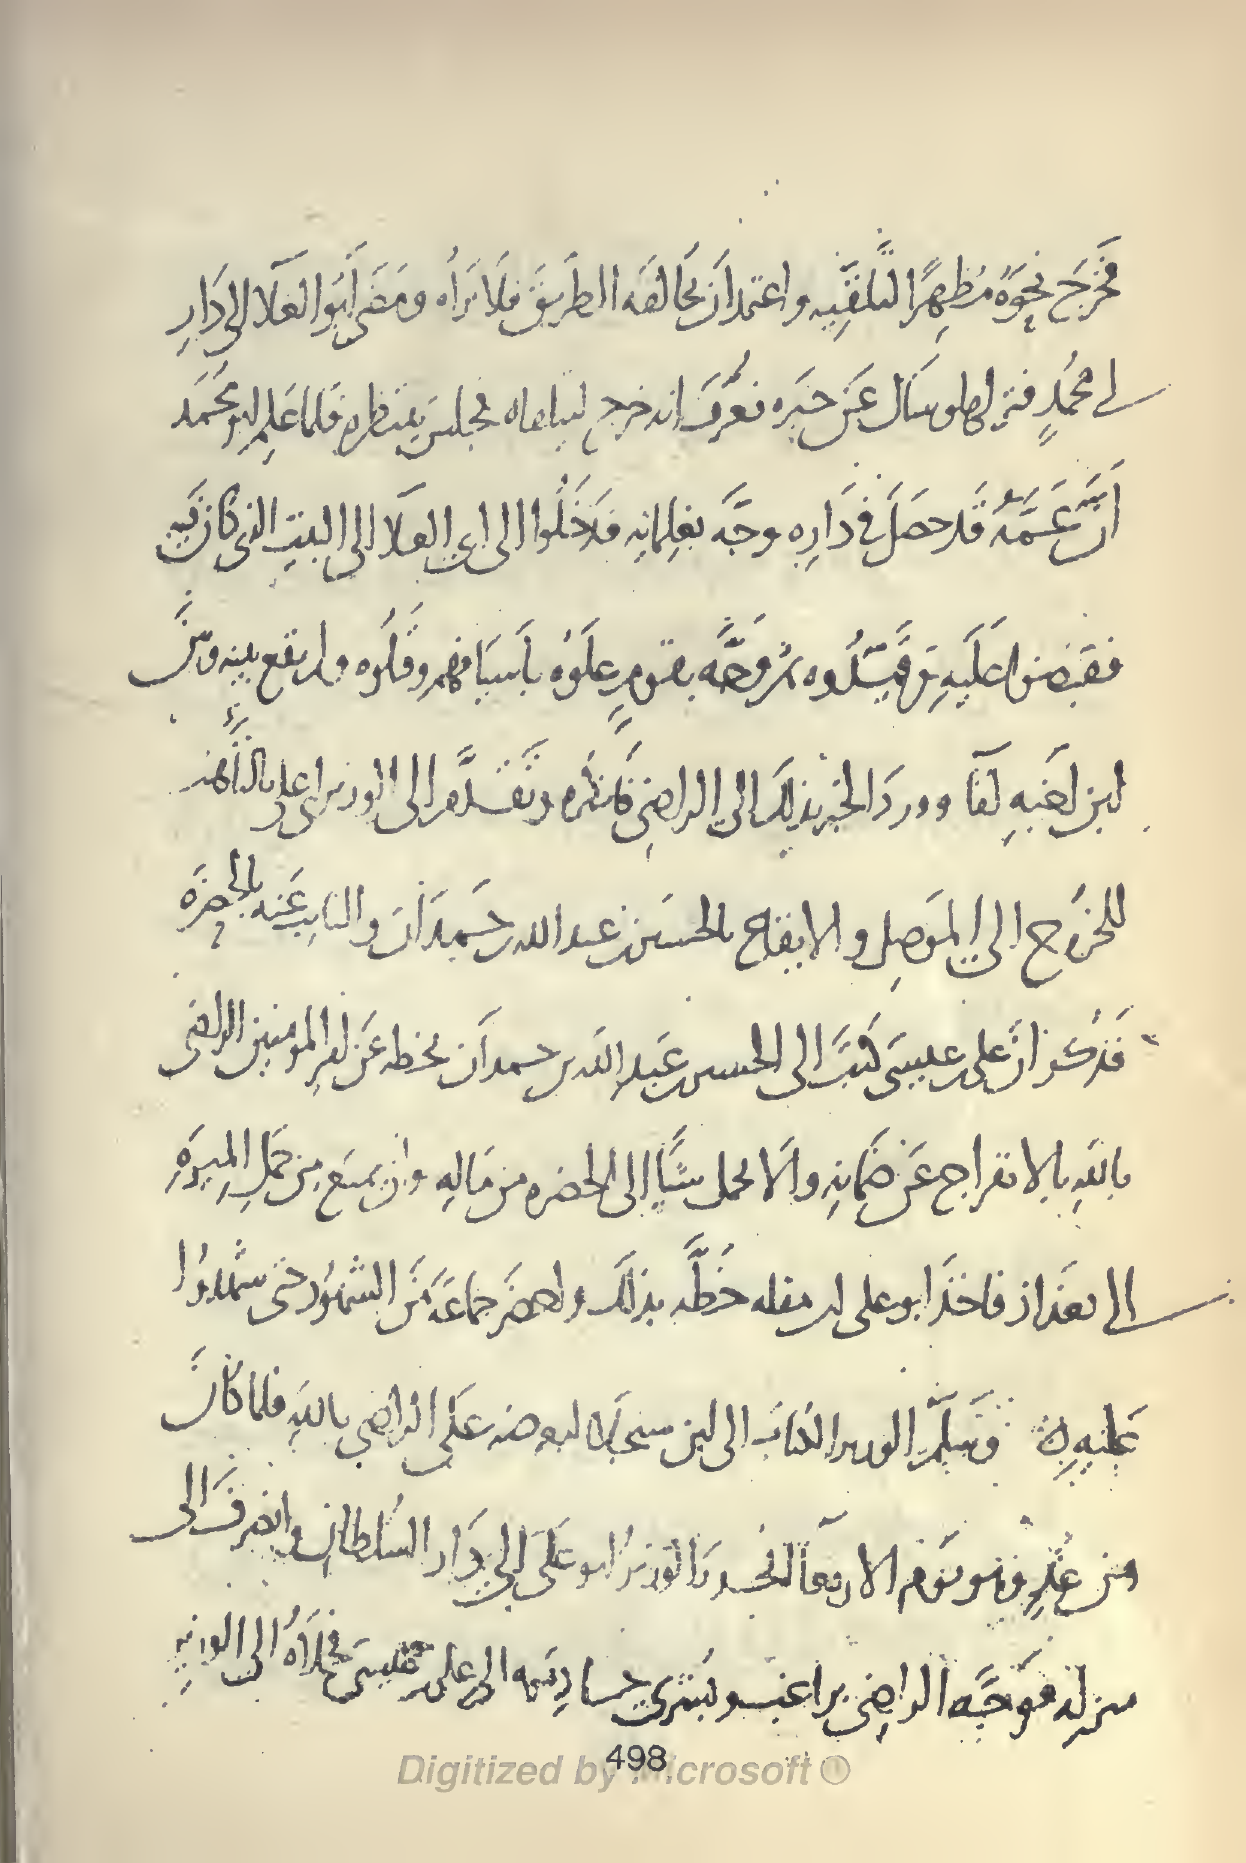 فخرج نحوه مُظهرًا لتلقّيه واعتمد أن يخالفه الطريق فلا يراه ومضى أبو العلا الى دار
ابى محمد فنزلها وسال عن خبره فعُرّف انه خرج ليلقاه فجلس ينتظره فلما علم ابو محمد
انّ عمّه قد حصل فى داره وجّه بغلمانه فدخلوا الى ابى العلا الى البيت الذى كان فيه
فقبضوا عليه وقيّدوه ثم وجّه بقوم علوه باسيافهم وقتلوه ولم يقع بينه وبين
ابن اخيه لقا وورد الخبر بذلك الى الراضى فانكره وتقدّم الى الوزير ابى على بالتأهب
للخروج الى الموصل والايقاع بالحسن بن عبد الله بن حمدان والنايب عنه بالحضرة
فذكر انّ على بن عيسى كتب الى الحسن بن عبد الله بن حمدان بخطه عن امير المومنين الراضى
بالله بالافراج عن ضمانه والا يحمل شيًا الى الحضره من ماله وان يمنع من حمل الميرة
الى بغداذ فاخذ ابو على بن مقله خطّه بذلك واحضر جماعة من الشهود حتى شهدوا
عليه به وسلّم الوزير الكتاب الى ابن سنجلا ليعرضه على الراضى بالله فلما كان
من غدٍ وهو يوم الاربعا انحدر الوزير ابو على الى دار السلطان وانصرف الى
منزله فوجّه الراضى براغب وبُشرى خادميه الى على بن عيسى فحدراه الى الوزير
498
Digitized by Microsoft ®